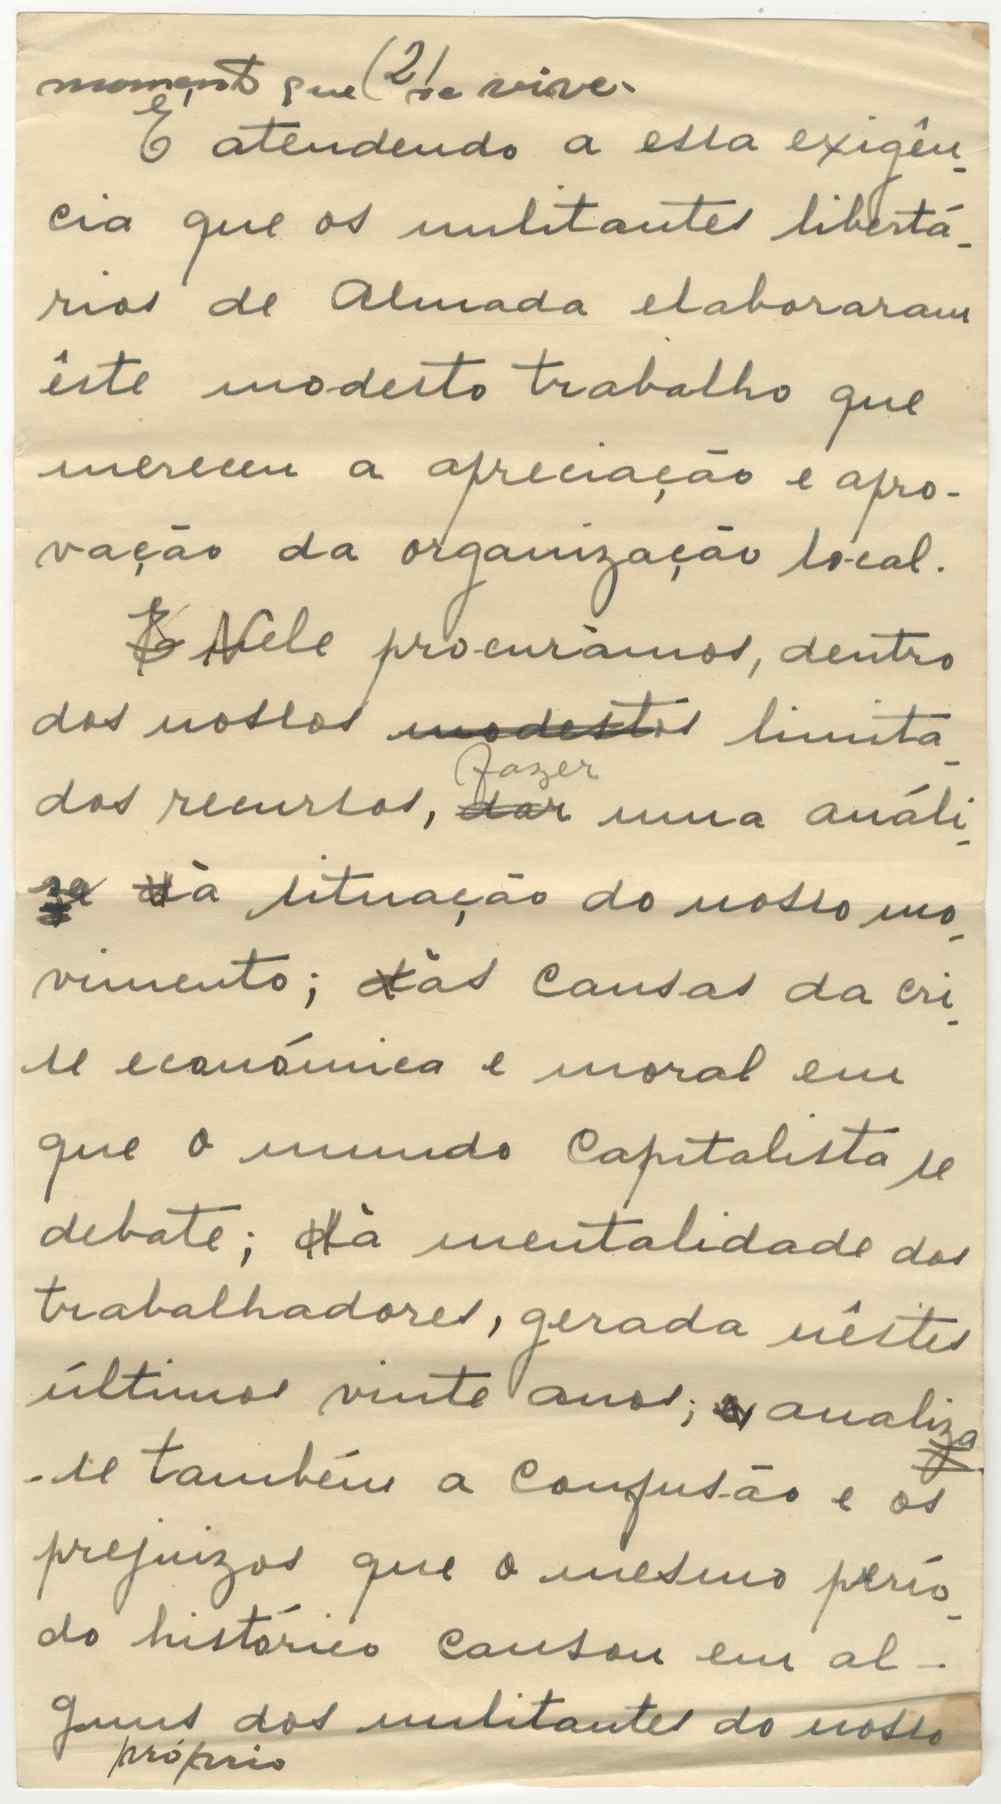 momento que (2) se vive.
É atendendo a essa exigên-
cia que os militantes libertá-
rios de Almada elaboraram
êste modesto trabalho que
mereceu a apreciação e apro-
vação da organização local.
É Nele procurámos, dentro
dos nossos modestos limita-
dos recursos, dar fazer uma análi-
se dà situação do nosso mo-
vimento; dàs causas da cri-
se económica e moral em
que o mundo capitalista se
debate; dà mentalidade dos
trabalhadores, gerada nêstes
últimos vinte anos; e analiza
-se também a confusão e os
prejuizos que o mesmo perío-
do histórico causou em al-
guns dos militantes do nosso
próprio